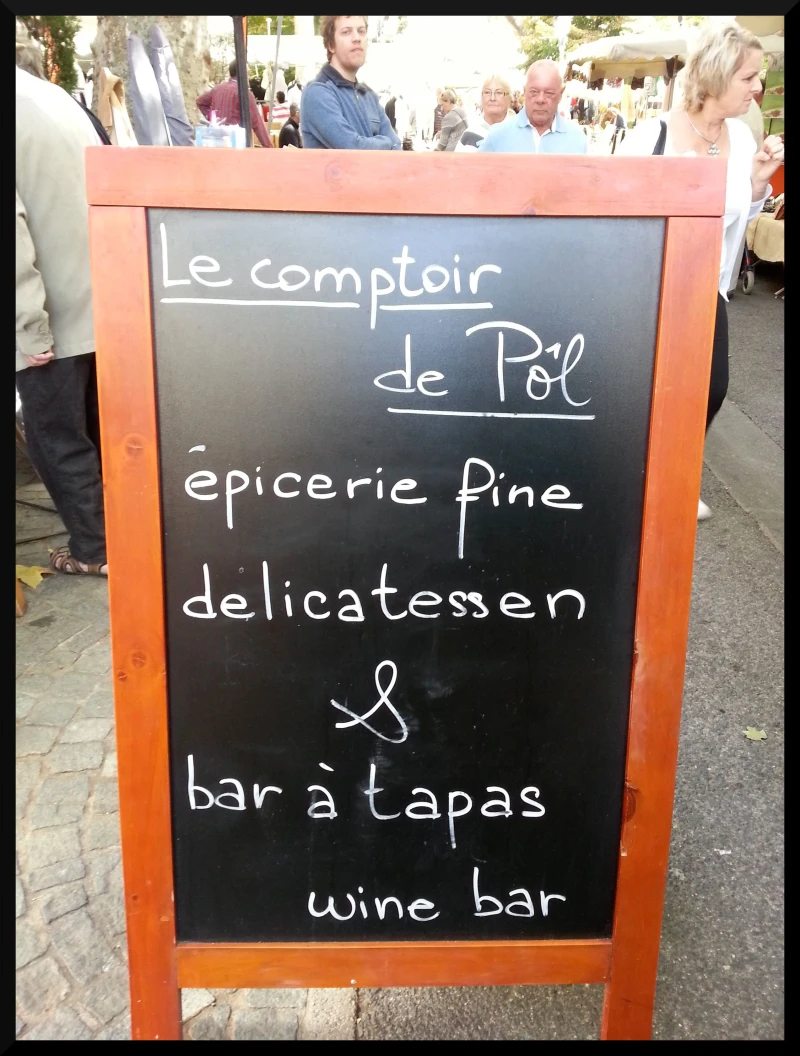 Le comptoir
de Pôl
épicerie fine
delicatessen
&
bar à tapas
wine bar